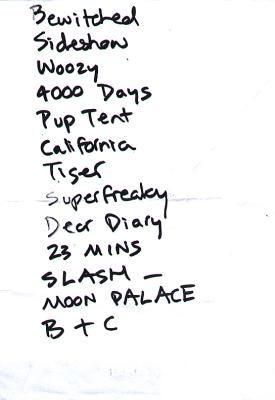 Bewitched
Sideshow
Woozy
4000 Days
Pup Tent
California
Tiger
Superfreaky
Dear Diary
23 MINS
SLASH —
MOON PALACE
B + C